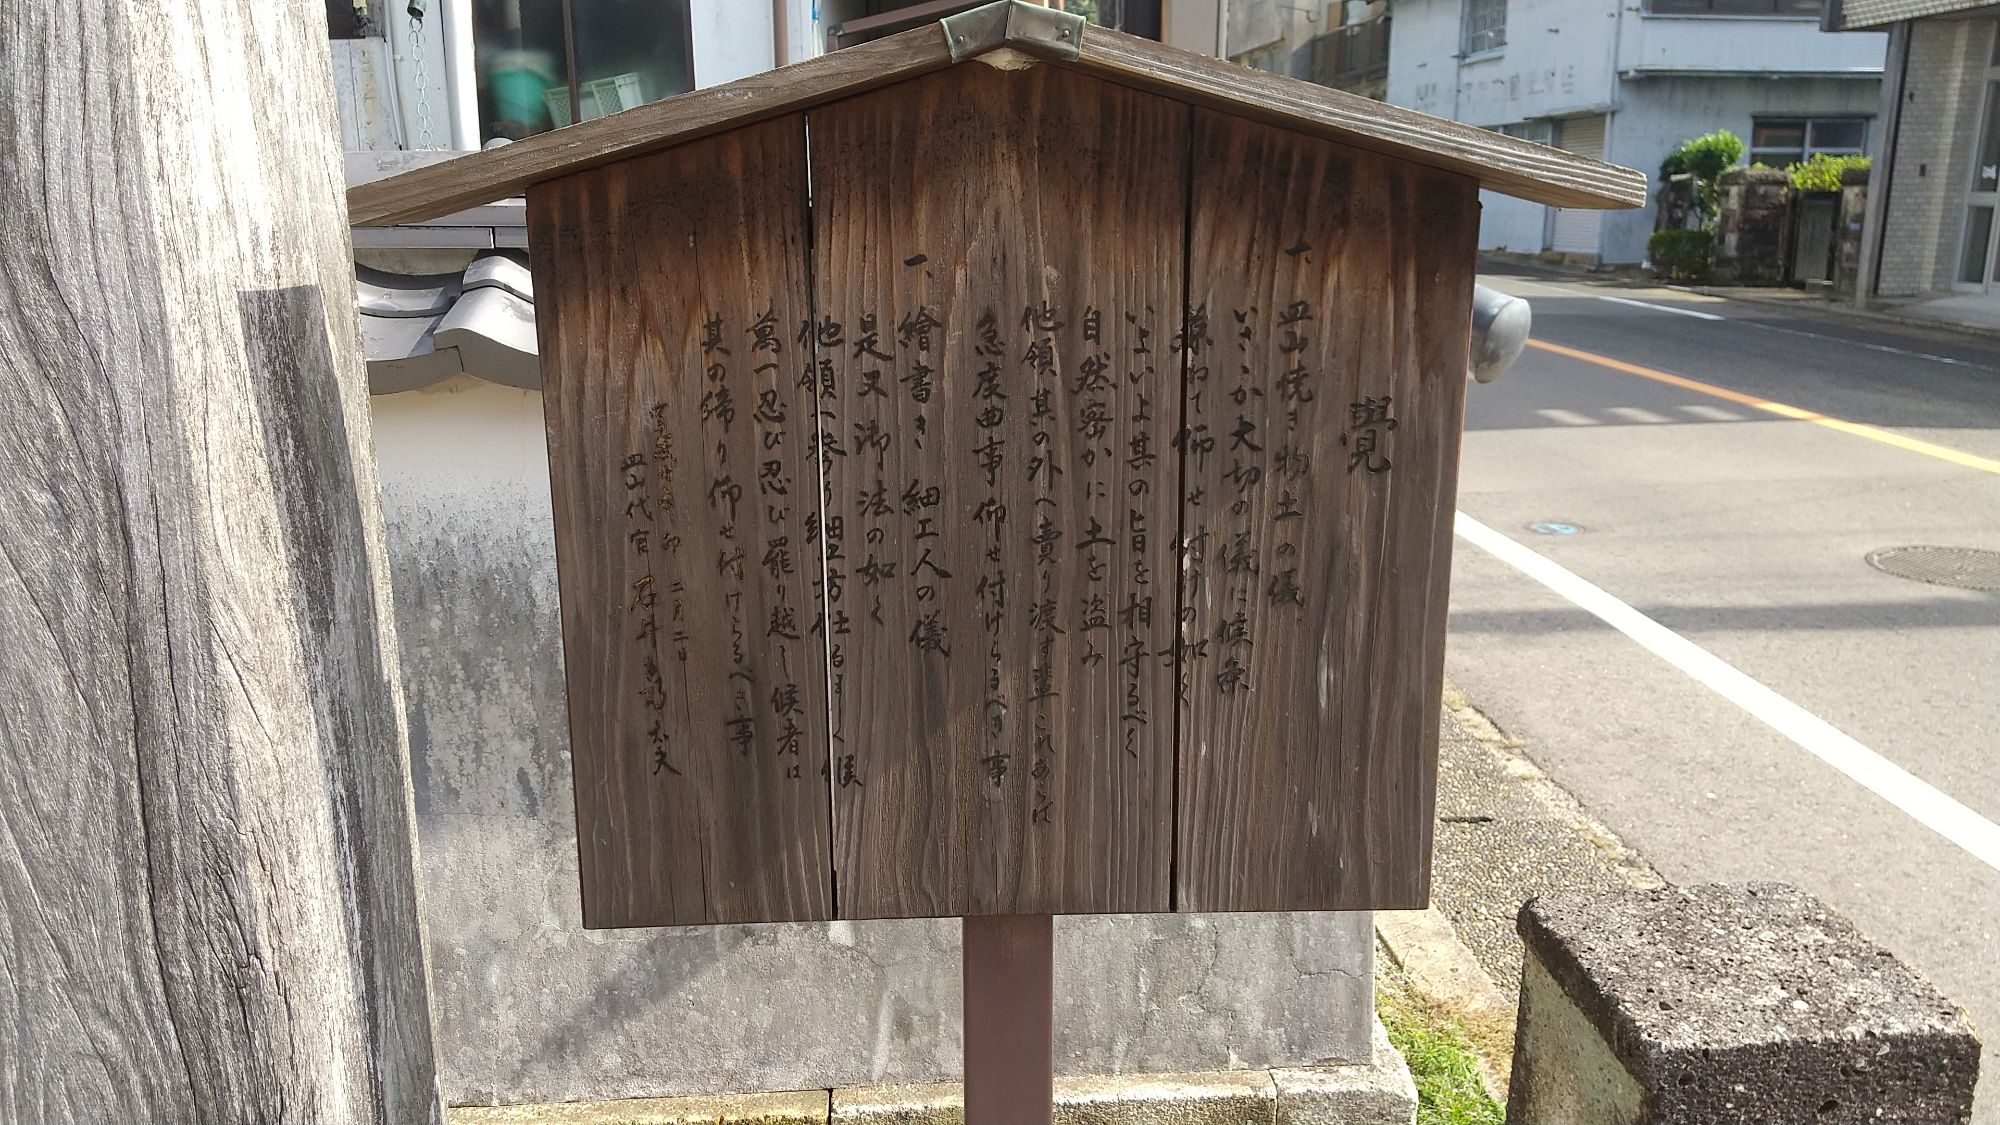 覺
一、皿山焼き物土の儀
いさゝか大切の儀に候条
兼ねて仰せ付けの如く
いよいよ其の旨を相守るべく
自然密かに土を盗み
他領其の外へ賣り渡す輩これあらば
急度曲事仰せ付けらるべき事
一、繪書き 細工人の儀
是又御法の如く
他領へ參り細工方仕るまじく候
萬一忍び忍び罷り越し候者は
其の締り仰せ付けらるべき事
二月二日
皿山代官 石井 太夫